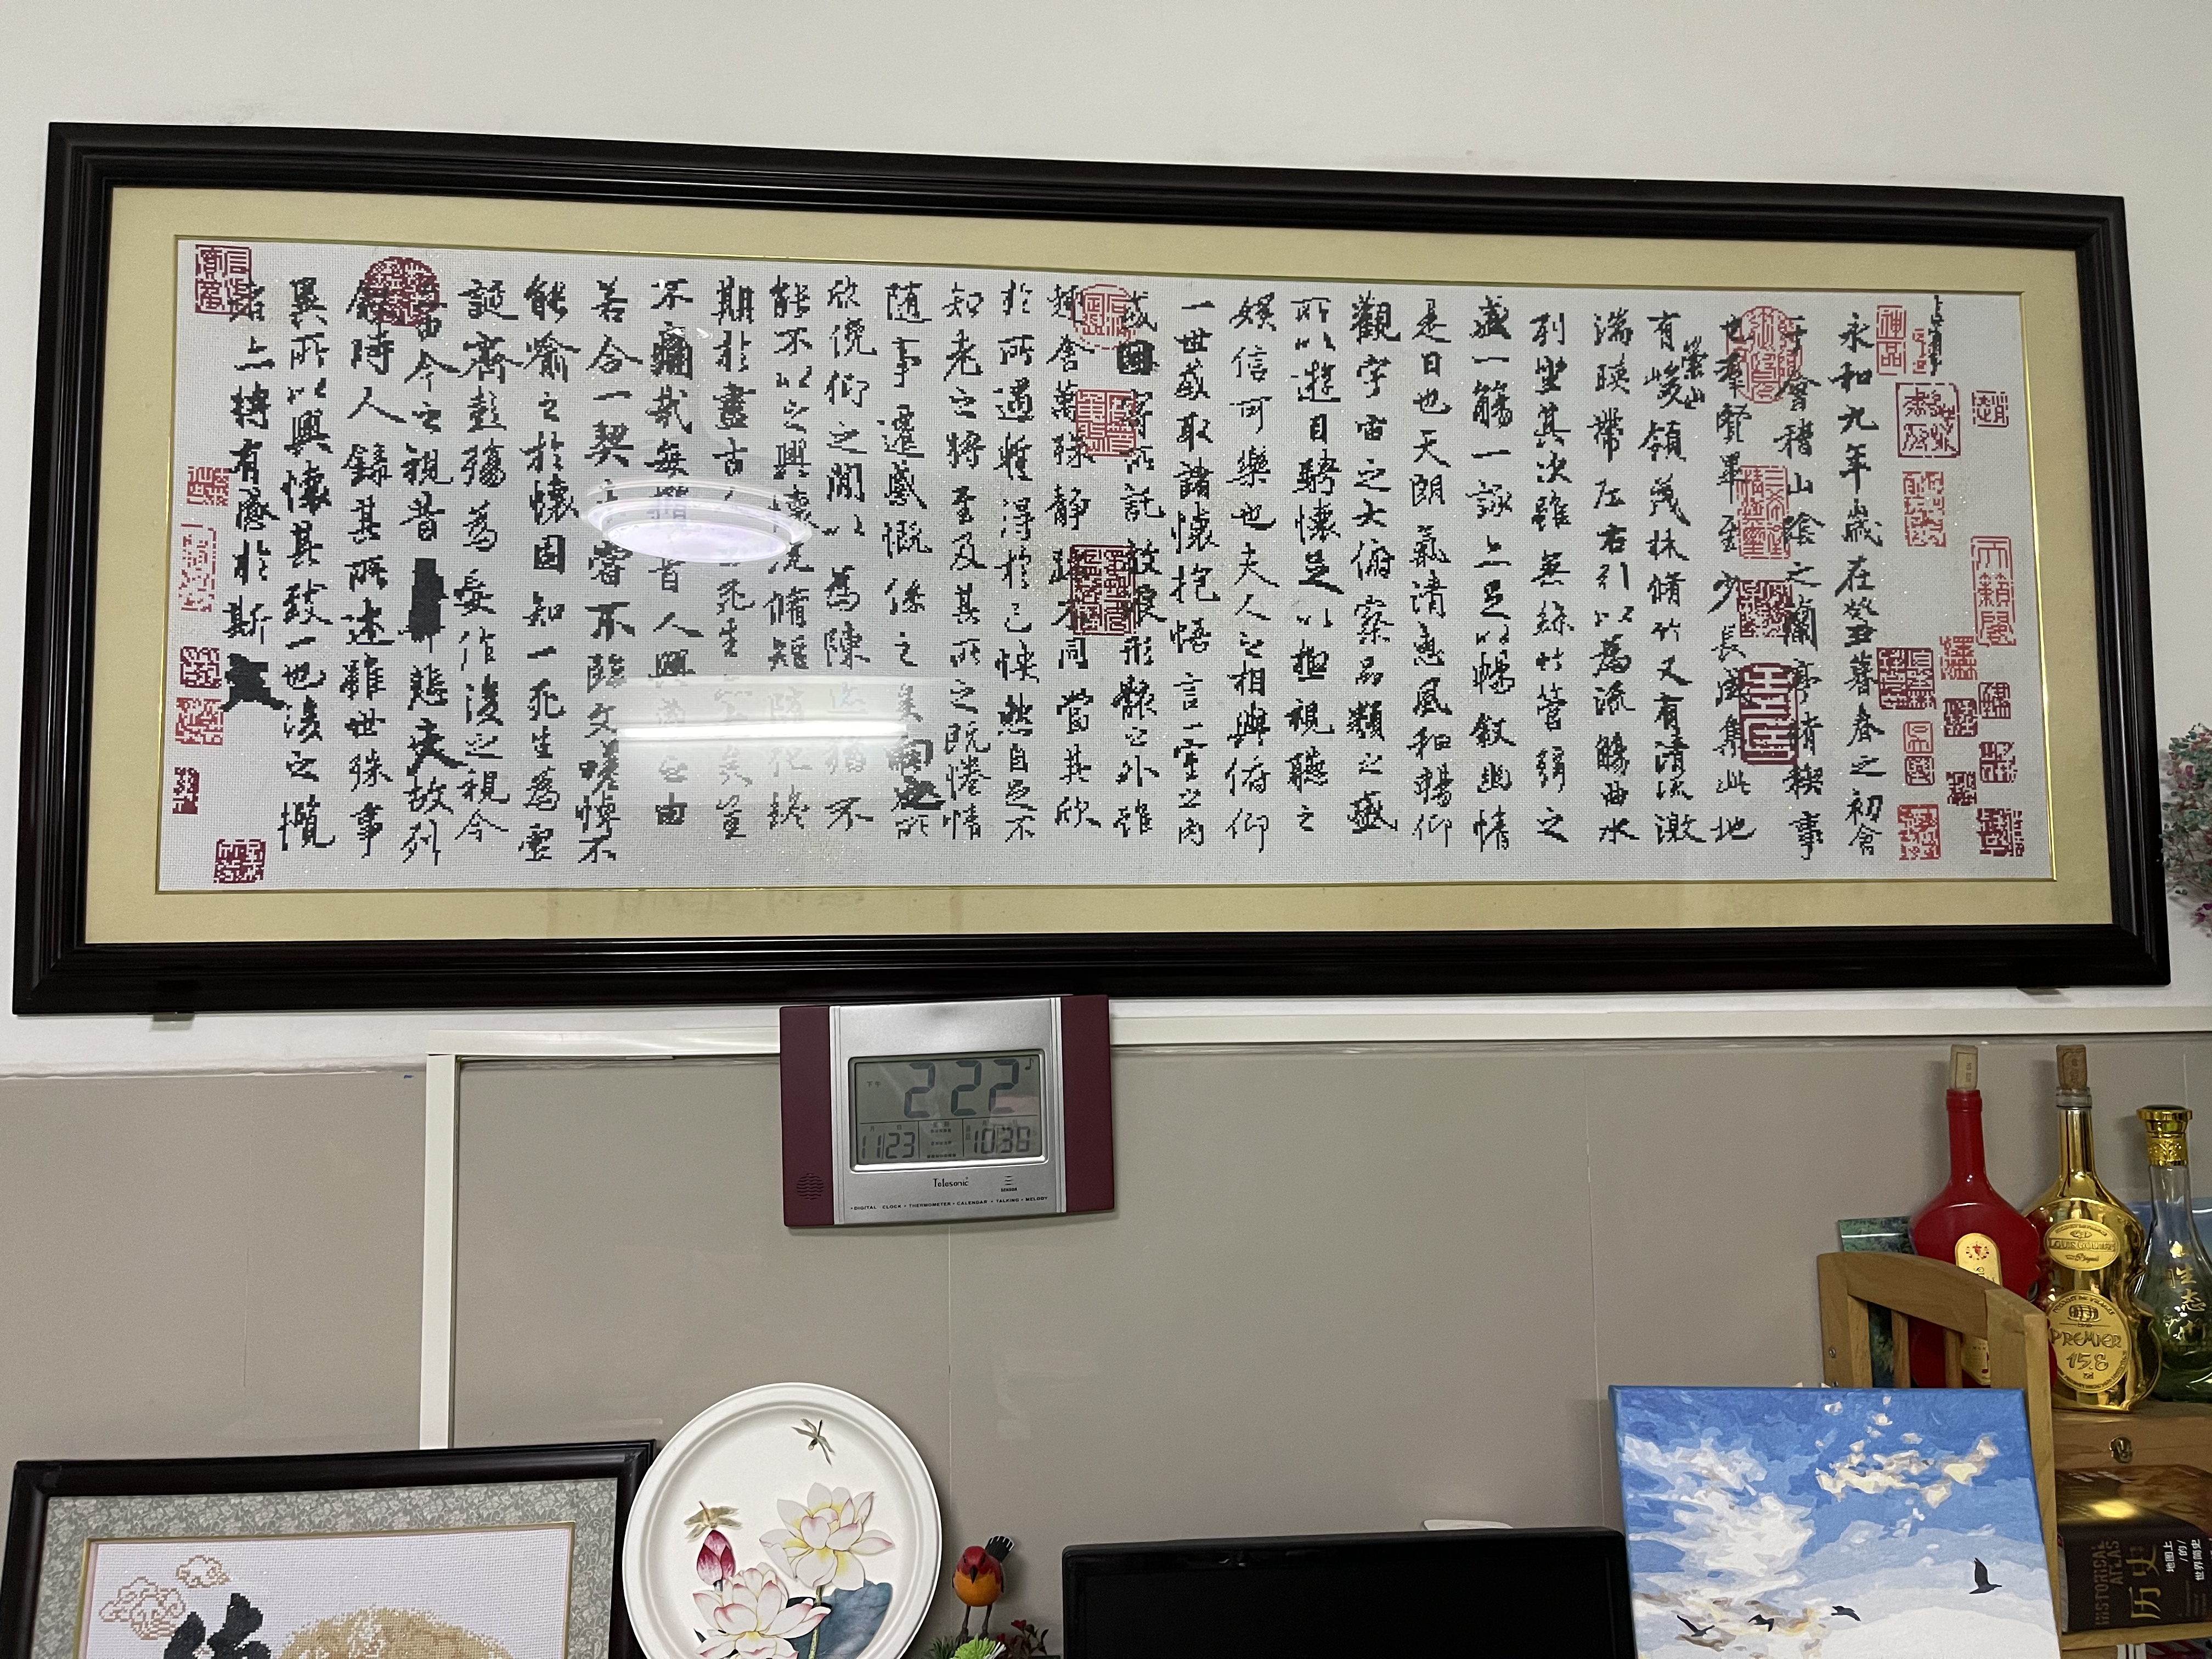 永和九年歲在癸丑暮春之初會
于會稽山陰之蘭亭脩稧事
也羣賢畢至少長咸集此地
有崇山峻領茂林脩竹又有清流激
湍暎帶左右引以為流觴曲水
列坐其次雖無絲竹管弦之
盛一觴一詠亦足以暢敘幽情
是日也天朗氣清惠風和暢仰
觀宇宙之大俯察品類之盛
所以遊目騁懷足以極視聽之
娛信可樂也夫人之相與俯仰
一世或取諸懷抱悟言一室之內
或因寄所託放浪形骸之外雖
趣舍萬殊靜躁不同當其欣
於所遇暫得於己怏然自足不
知老之將至及其所之既惓情
隨事遷感慨係之矣向之所
欣俛仰之閒以為陳迹猶不
能不以之興懷況脩短隨化終
期於盡古人云死生亦大矣豈
不痛哉每攬昔人興感之由
若合一契未嘗不臨文嗟悼不
能喻之於懷固知一死生為虛
誕齊彭殤為妄作後之視今
亦由今之視昔悲夫故列
敘時人錄其所述雖世殊事
異所以興懷其致一也後之攬
者亦將有感於斯文
下午 2 22
11 23
10 38
Telesonic
SENSOR
•DIGITAL CLOCK • THERMOMETER • CALENDAR • TALKING • MELODY
PREMIER
158
生态
HISTORICAL ATLAS
历史
地图上
/的/
世界简史